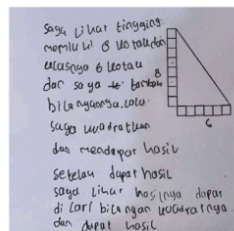 saya Lihat tingging
memiliki 8 kotak dan
alasnya 6 kotak
dan saya
bilangannya, lalu
saya kuadratkan
dan mendapat hasil
setelah dapat hasil
saya Lihat hasilnya dapat
di cari bilangan kuadratnya
dan dapat hasil
8
6